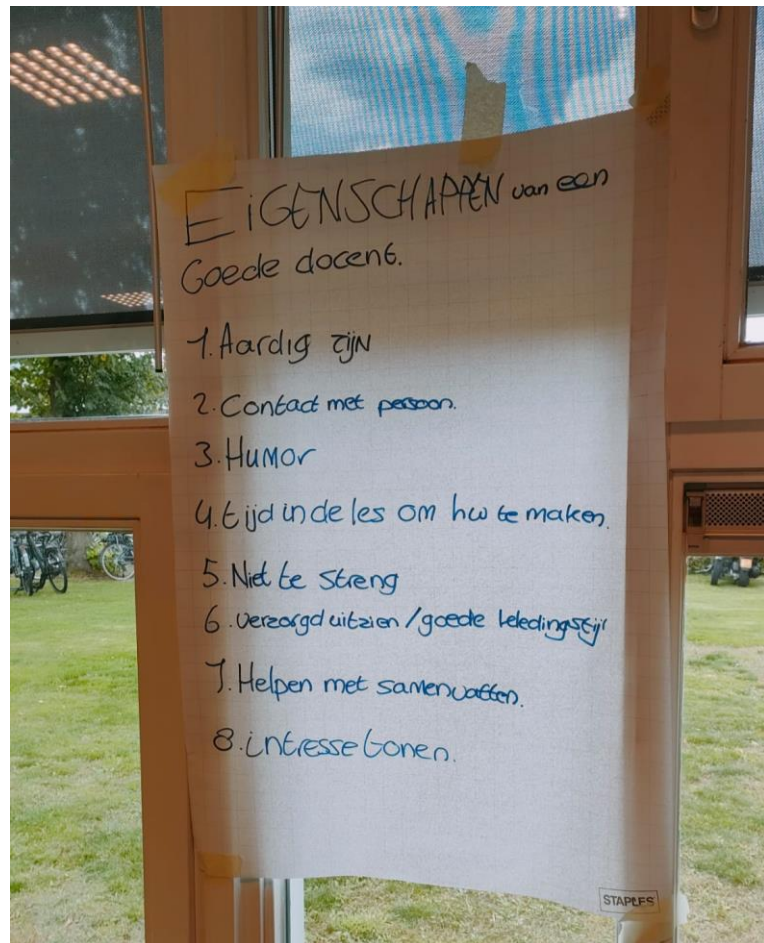 EiGENSCHAPPEN van een
Goede docent.
1. Aardig zijn
2. Contact met persoon.
3. Humor
4. tijd in de les om hw te maken.
5. Niet te streng
6. verzorgd uitzien / goede kledingstijl
7. Helpen met samenvatten.
8. intresse tonen.
STAPLES